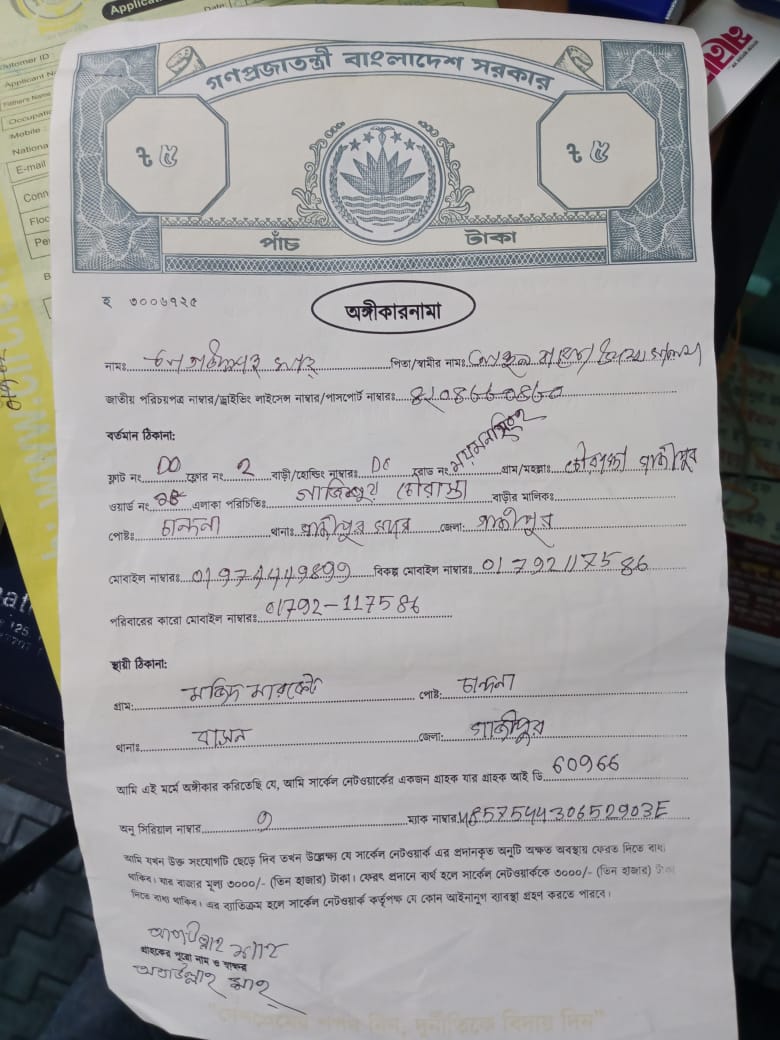 Applicat
Date
Customer ID
Applicant N
Father's Name
Occupati
Mobile
Nationa
E-mail
Conn
Floo
Pe
গণপ্রজাতন্ত্রী বাংলাদেশ সরকার
ট ৫
ট ৫
পাঁচ টাকা
৩০০৬৭২৫
অঙ্গীকারনামা
নামঃ পিতা/স্বামীর নামঃ
জাতীয় পরিচয়পত্র নাম্বার/ড্রাইভিং লাইসেন্স নাম্বার/পাসপোর্ট নাম্বারঃ 8208660860
বর্তমান ঠিকানা:
ফ্লাট নং DO ফ্লোর নং 2 বাড়ী/হোল্ডিং নাম্বারঃ রোড নং ময়মনসিংহ গ্রাম/মহল্লাঃ চৌরাস্তা গাজীপুর
ওয়ার্ড নং এলাকা পরিচিতিঃ গাজিপুর চৌরাস্তা বাড়ীর মালিকঃ
পোষ্টঃ চান্দনা থানাঃ গাজীপুর সদর জেলা: গাজীপুর
মোবাইল নাম্বারঃ 01974449899 বিকল্প মোবাইল নাম্বারঃ 01792117586
পরিবারের কারো মোবাইল নাম্বারঃ 01792-117586
স্থায়ী ঠিকানা:
গ্রাম: মজিদ মারকেট পোষ্ট: চান্দনা
থানাঃ বাসন জেলা: গাজীপুর
আমি এই মর্মে অঙ্গীকার করিতেছি যে, আমি সার্কেল নেটওয়ার্কের একজন গ্রাহক যার গ্রাহক আই ডি 60966
অনু সিরিয়াল নাম্বার 9 ম্যাক নাম্বার 485754430652903E
আমি যখন উক্ত সংযোগটি ছেড়ে দিব তখন উল্লেক্ষ্য যে সার্কেল নেটওয়ার্ক এর প্রদানকৃত অনুটি অক্ষত অবস্থায় ফেরত দিতে বাধ্য
থাকিব। যার বাজার মূল্য ৩০০০/- (তিন হাজার) টাকা। ফেরৎ প্রদানে ব্যর্থ হলে সার্কেল নেটওয়ার্ককে ৩০০০/- (তিন হাজার) টাকা
দিতে বাধ্য থাকিব। এর ব্যতিক্রম হলে সার্কেল নেটওয়ার্ক কর্তৃপক্ষ যে কোন আইনানুগ ব্যবস্থা গ্রহণ করতে পারবে।
গ্রাহকের পুরো নাম ও স্বাক্ষর